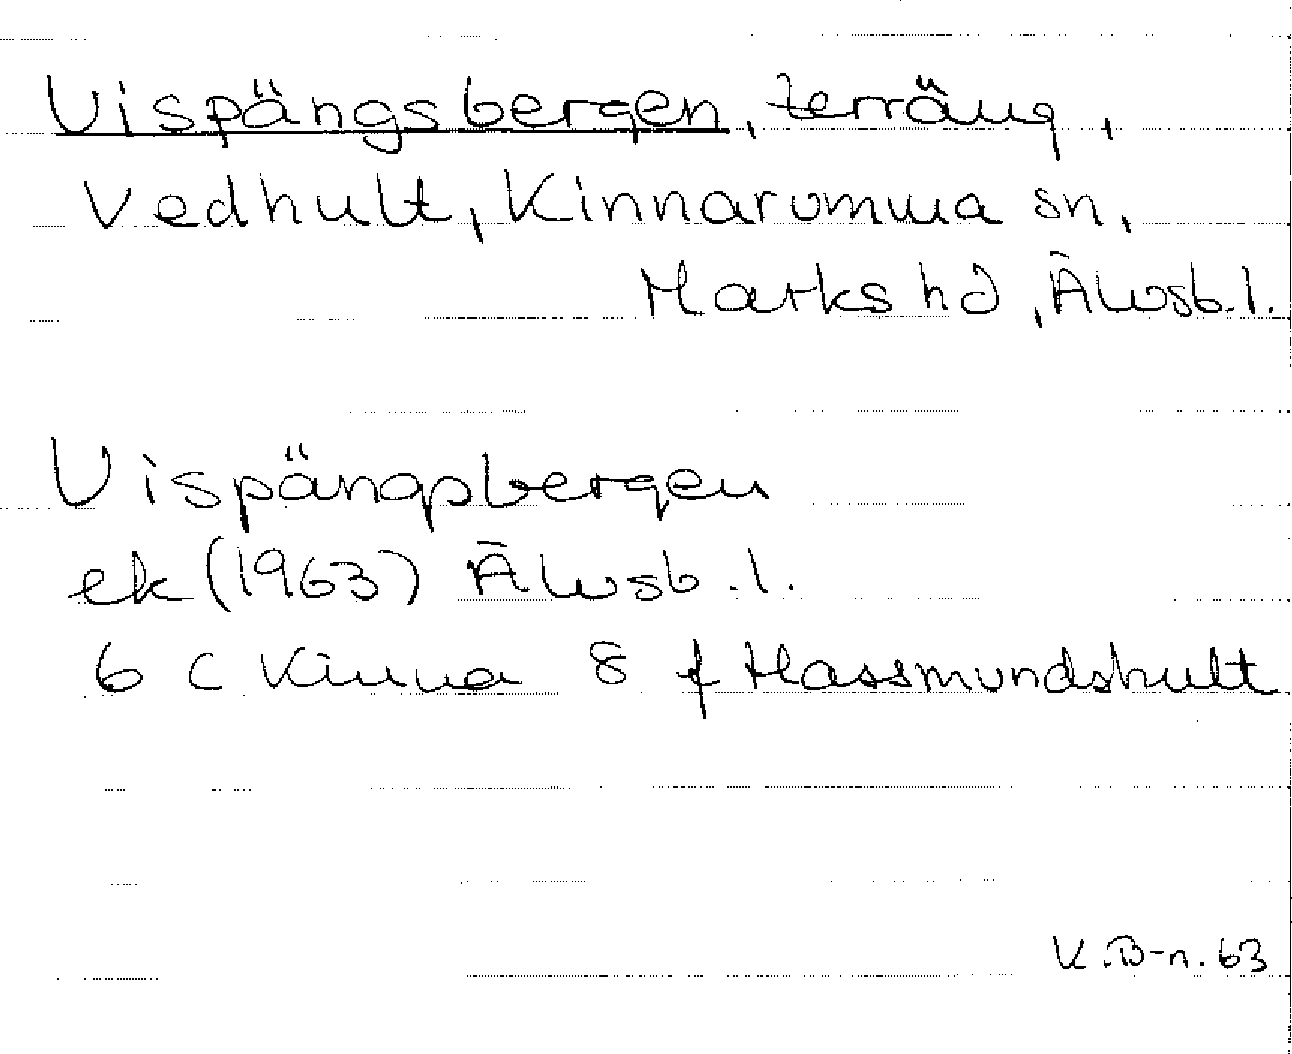 Vispängsbergen, terräng,
Vedhult, Kinnarumma sn,
Marks hd, Älvsb. l.
Vispängsbergen
ek (1963) Älvsb. l.
6 C Kinna 8 f Hassmundshult
K.B-n. 63